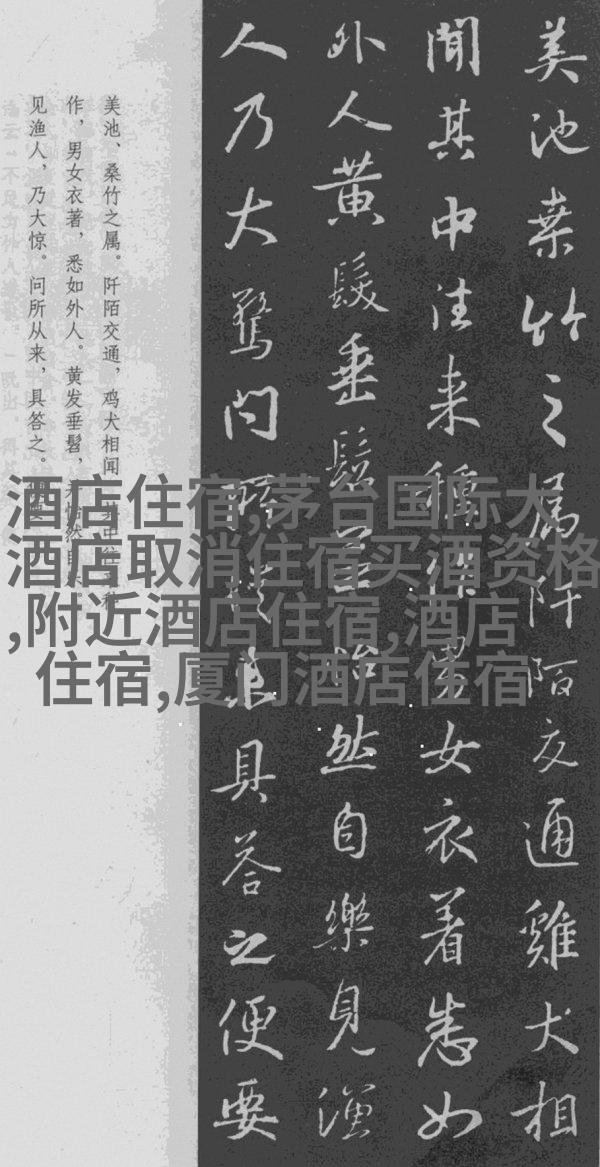 美池桑竹之属阡陌交通雞犬相
聞其中往来種作男女衣着悉如
外人黄髮垂髫並怡然自樂見漁
人乃大驚问所從来具荅之便要
美池、桑竹之属。阡陌交通，鸡犬相闻。其中往来种
作，男女衣著，悉如外人。黄发垂髫，并怡然自乐。
见渔人，乃大惊。问所从来，具答之。便要
酒店住宿,茅台国际大
酒店取消住宿买酒资格
,附近酒店住宿,酒店
住宿,厦门酒店住宿